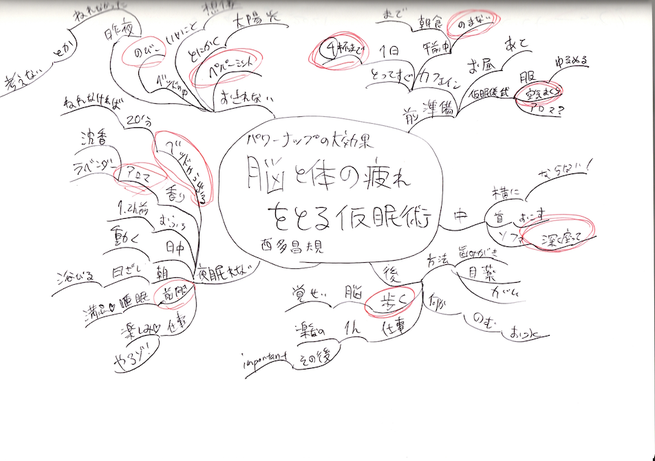 パワーナップの大効果
脳と体の疲れ
をとる仮眠術
西多昌規
ねれなかった
とか
考えない
昨夜
のびー
いいこと
太陽光
とにかく
ペパーミント
おきれない
まで
朝食
のまない
午前中
4杯まで
1日
とってすぐ
カフェイン
お昼
あと
服
ゆるめる
仮眠
空気まくら
アロマ?
準備
前
中
横に
ならない!
首
おこす
ソファ
深く座って
後
方法
歯みがき
目薬
ガム
何か
のむ
覚せい
脳
歩く
楽な
仕事
important
その後
夜眠れない
ねれなければ
20分
ベッドから出る
沈香
ラベンダー
アロマ
香り
1,2h前
おふろ
動く
日中
浴びる
日ざし
朝
満足
睡眠
楽しみ
仕事
やるぞ!